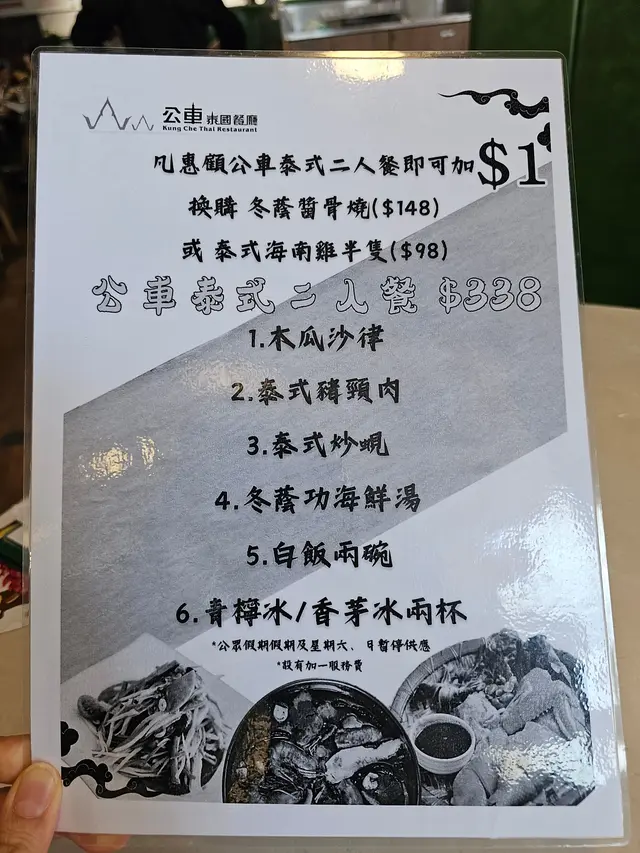 公車泰國餐廳
Kung Che Thai Restaurant
凡惠顧公車泰式二人餐即可加$1
換購 冬蔭醬骨燒($148)
或 泰式海南雞半隻($98)
公車泰式二人餐 $338
1.木瓜沙律
2.泰式豬頸肉
3.泰式炒蜆
4.冬蔭功海鮮湯
5.白飯兩碗
6.青檸冰/香茅冰兩杯
*公眾假期假期及星期六、日暫停供應
*設有加一服務費